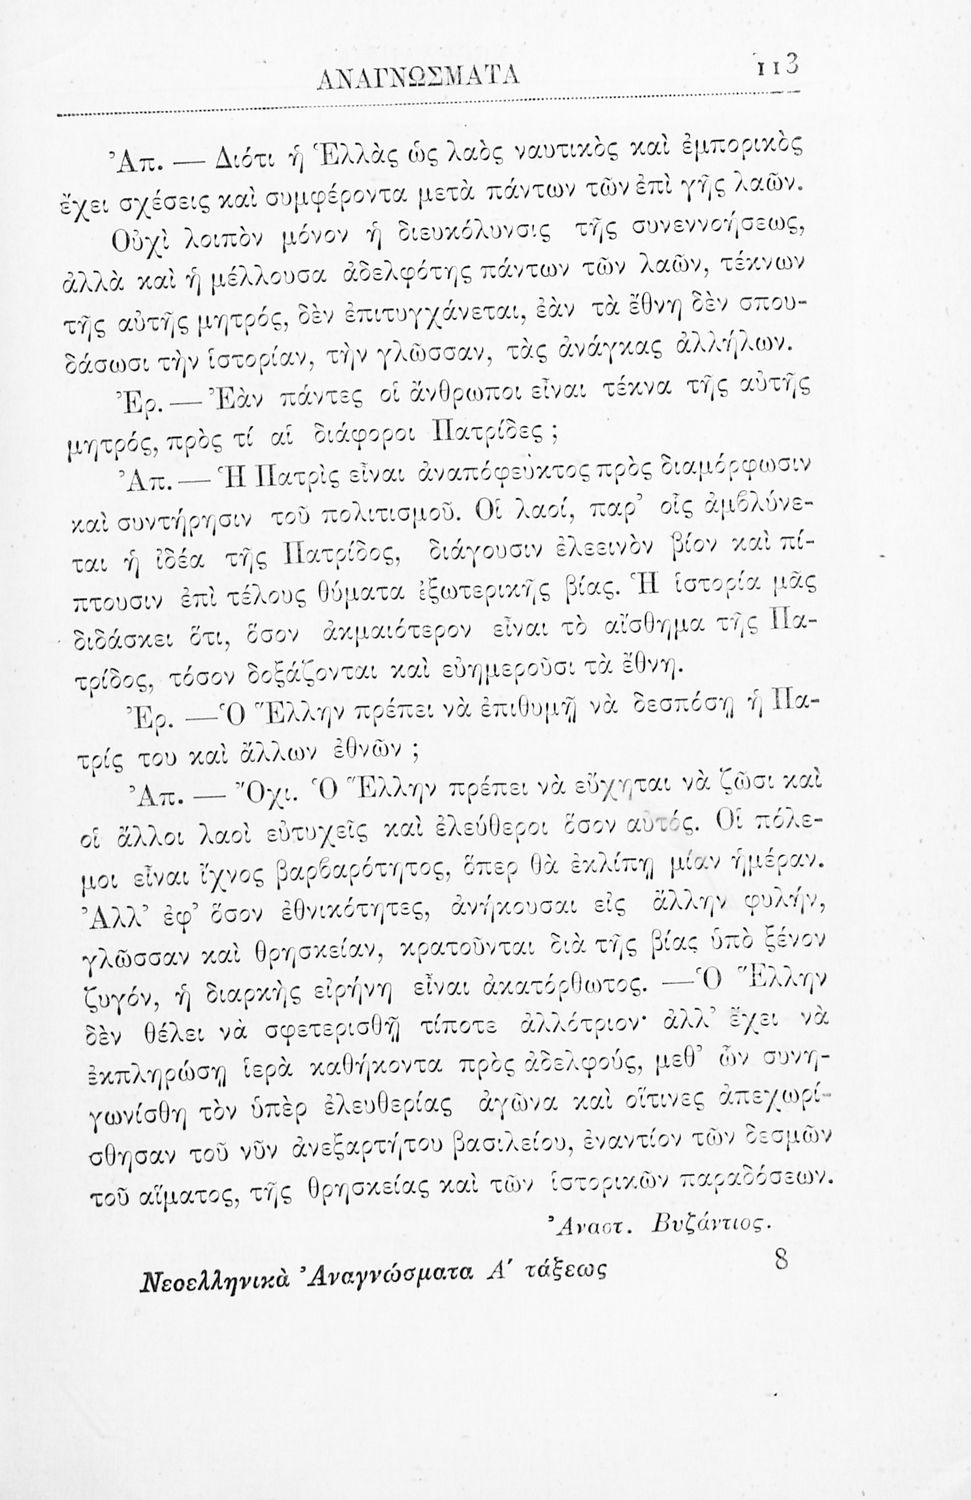 ΑΝΑΓΝΩΣΜΑΤΑ 113
Ἀπ. — Διότι ἡ Ἑλλὰς ὡς λαὸς ναυτικὸς καὶ ἐμπορικὸς
ἔχει σχέσεις καὶ συμφέροντα μετὰ πάντων τῶν ἐπὶ γῆς λαῶν.
Οὐχὶ λοιπὸν μόνον ἡ διευκόλυνσις τῆς συνεννοήσεως,
ἀλλὰ καὶ ἡ μέλλουσα ἀδελφότης πάντων τῶν λαῶν, τέκνων
τῆς αὐτῆς μητρός, δὲν ἐπιτυγχάνεται, ἐὰν τὰ ἔθνη δὲν σπου-
δάσωσι τὴν ἱστορίαν, τὴν γλῶσσαν, τὰς ἀνάγκας ἀλλήλων.
Ἐρ. — Ἐὰν πάντες οἱ ἄνθρωποι εἶναι τέκνα τῆς αὐτῆς
μητρός, πρὸς τί αἱ διάφοροι Πατρίδες ;
Ἀπ. — Ἡ Πατρὶς εἶναι ἀναπόφευκτος πρὸς διαμόρφωσιν
καὶ συντήρησιν τοῦ πολιτισμοῦ. Οἱ λαοί, παρ’ οἷς ἀμβλύνε-
ται ἡ ἰδέα τῆς Πατρίδος, διάγουσιν ἐλεεινὸν βίον καὶ πί-
πτουσιν ἐπὶ τέλους θύματα ἐξωτερικῆς βίας. Ἡ ἱστορία μᾶς
διδάσκει ὅτι, ὅσον ἀκμαιότερον εἶναι τὸ αἴσθημα τῆς Πα-
τρίδος, τόσον δοξάζονται καὶ εὐημεροῦσι τὰ ἔθνη.
Ἐρ. — Ὁ Ἕλλην πρέπει νὰ ἐπιθυμῇ νὰ δεσπόσῃ ἡ Πα-
τρίς του καὶ ἄλλων ἐθνῶν ;
Ἀπ. — Ὄχι. Ὁ Ἕλλην πρέπει νὰ εὔχηται νὰ ζῶσι καὶ
οἱ ἄλλοι λαοὶ εὐτυχεῖς καὶ ἐλεύθεροι ὅσον αὐτός. Οἱ πόλε-
μοι εἶναι ἴχνος βαρβαρότητος, ὅπερ θὰ ἐκλίπῃ μίαν ἡμέραν.
Ἀλλ’ ἐφ’ ὅσον ἐθνικότητες, ἀνήκουσαι εἰς ἄλλην φυλήν,
γλῶσσαν καὶ θρησκείαν, κρατοῦνται διὰ τῆς βίας ὑπὸ ξένον
ζυγόν, ἡ διαρκὴς εἰρήνη εἶναι ἀκατόρθωτος. — Ὁ Ἕλλην
δὲν θέλει νὰ σφετερισθῇ τίποτε ἀλλότριον· ἀλλ’ ἔχει νὰ
ἐκπληρώσῃ ἱερὰ καθήκοντα πρὸς ἀδελφούς, μεθ’ ὧν συνη-
γωνίσθη τὸν ὑπὲρ ἐλευθερίας ἀγῶνα καὶ οἵτινες ἀπεχωρί-
σθησαν τοῦ νῦν ἀνεξαρτήτου βασιλείου, ἐναντίον τῶν δεσμῶν
τοῦ αἵματος, τῆς θρησκείας καὶ τῶν ἱστορικῶν παραδόσεων.
Ἀναστ. Βυζάντιος.
Νεοελληνικὰ Ἀναγνώσματα Α΄ τάξεως 8